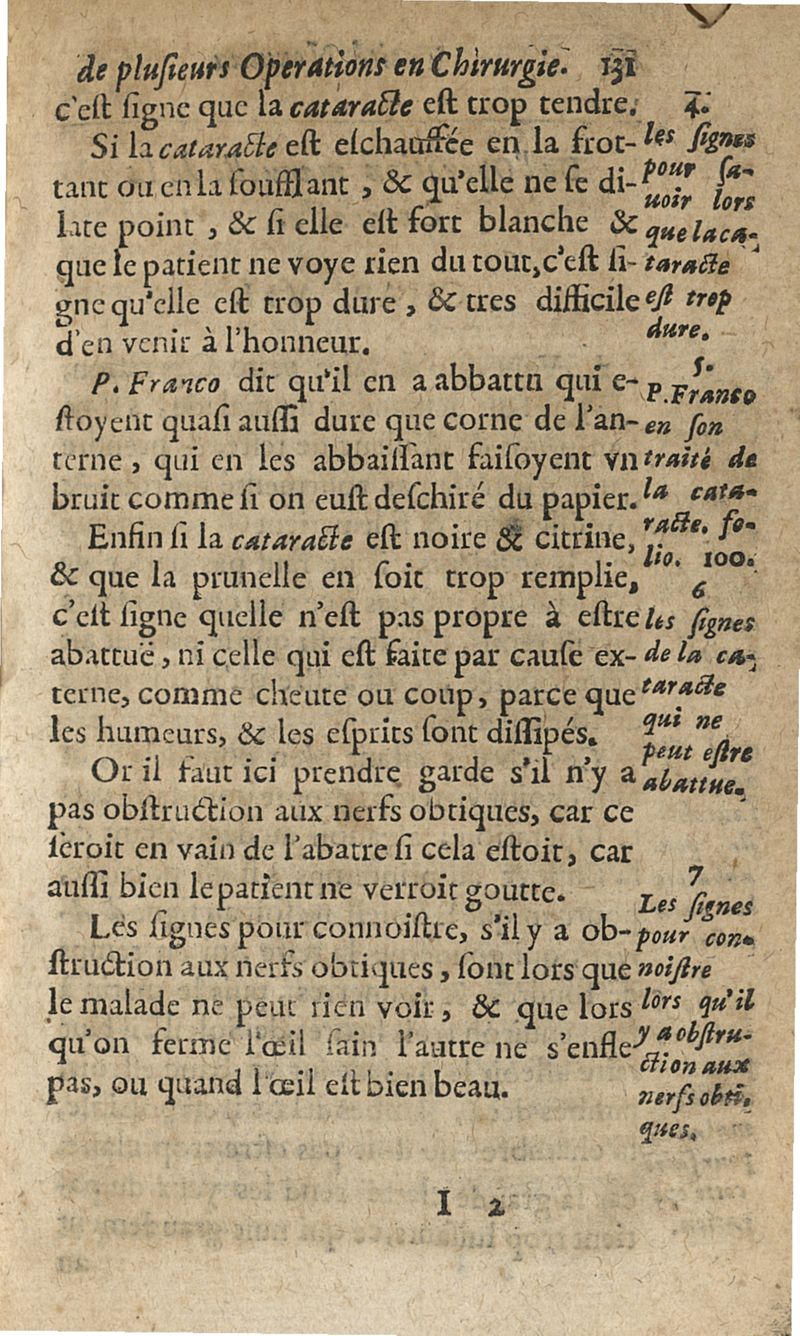 de plusieurs Operations en Chirurgie. 131
c'est signe que la cataracte est trop tendre.
Si la cataracte est eschauffée en la frot-
tant ou en la soufflant, & qu'elle ne se di-
late point, & si elle est fort blanche &
que le patient ne voye rien du tout, c'est si-
gne qu'elle est trop dure, & tres difficile
d'en venir à l'honneur.
P. Franco dit qu'il en a abbattu qui e-
stoyent quasi aussi dure que corne de l'an-
terne, qui en les abbaissant faisoyent vn
bruit comme si on eust deschiré du papier.
Enfin si la cataracte est noire & citrine,
& que la prunelle en soit trop remplie,
c'est signe quelle n'est pas propre à estre
abattuë, ni celle qui est faite par cause ex-
terne, comme cheute ou coup, parce que
les humeurs, & les esprits sont dissipés.
Or il faut ici prendre garde s'il n'y a
pas obstruction aux nerfs obtiques, car ce
seroit en vain de l'abatre si cela estoit, car
aussi bien le patient ne verroit goutte.
Les signes pour connoistre, s'il y a ob-
struction aux nerfs obtiques, sont lors que
le malade ne peut rien voir, & que lors
qu'on ferme l'œil sain l'autre ne s'enfle
pas, ou quand l'œil est bien beau.
4.
les signes
pour sa-
uoir lors
que la ca-
taracte
est trop
dure.
5.
P. Franco
en son
traité de
la cata-
racte. fo-
lio. 100.
6
les signes
de la ca-
taracte
qui ne
peut estre
abattue.
7
Les signes
pour con-
noistre
lors qu'il
y a obstru-
ction aux
nerfs obti-
ques.
I 2